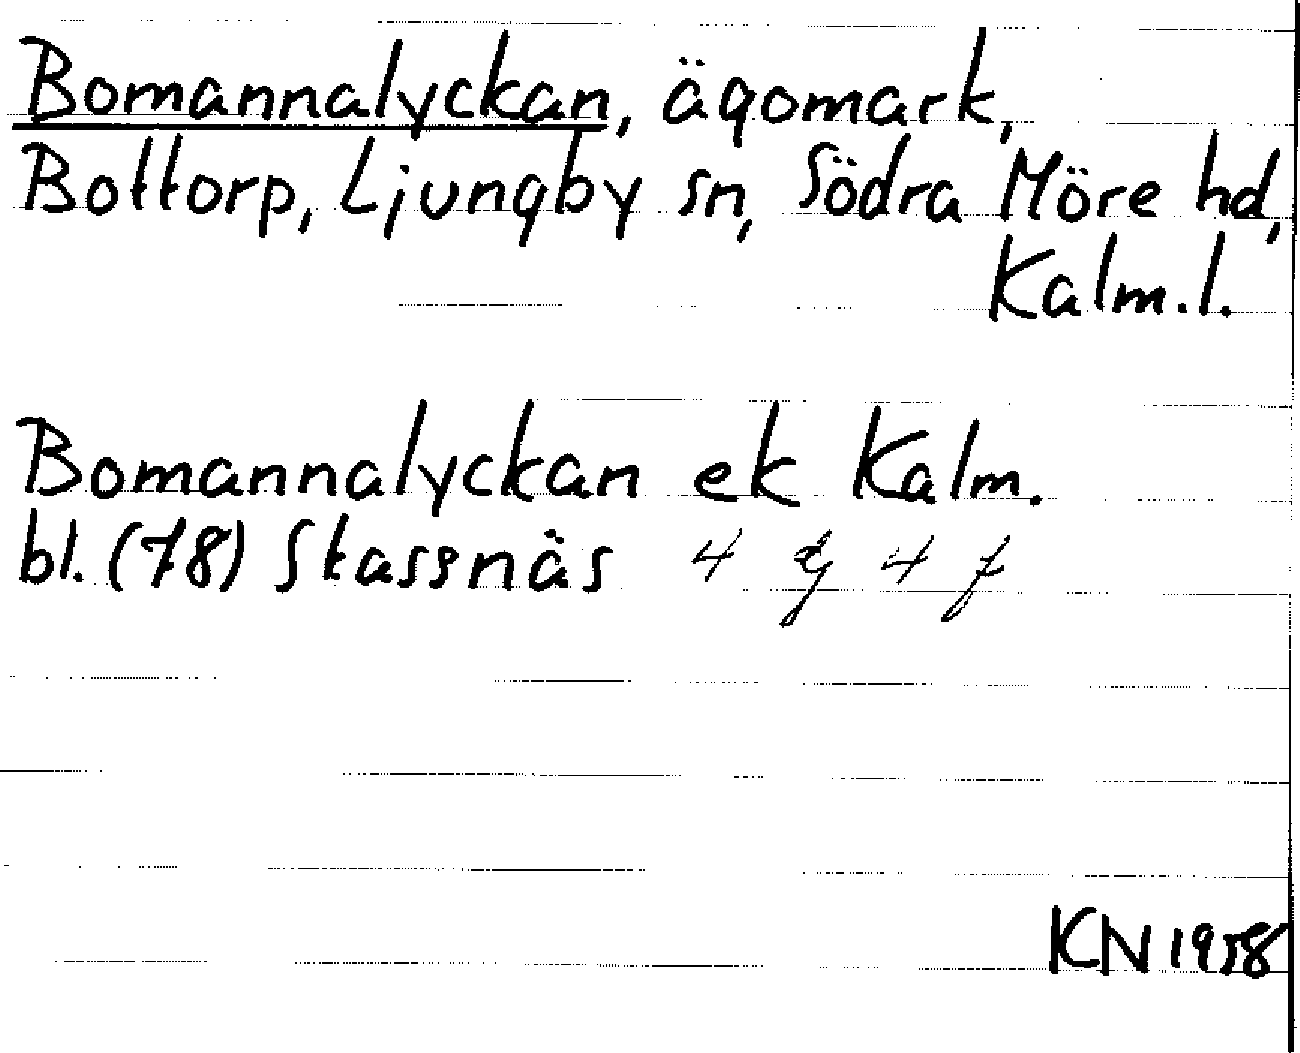 Bomannalyckan, ägomark,
Bottorp, Ljungby sn, Södra Möre hd,
Kalm.l.
Bomannalyckan ek Kalm.
bl. (78) Stassnäs 4 g 4 f
KN 1958